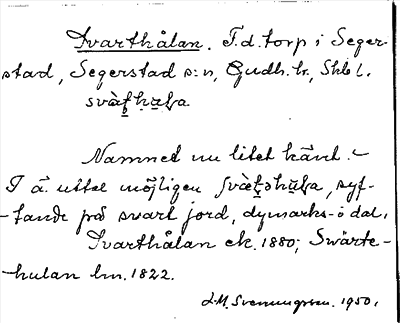 Svarthålan. F.d. torp i Seger-
stad, Segerstad s:n, Gudh. hr, Skbl.
Namnet nu litet känt. –
I ä. uttal möjligen syf-
-tande på svart jord, dymarks- o dal.
Svarthålan ek. 1880; Swärte-
-hulan hm. 1822.
J.M. Svennungsson. 1950.